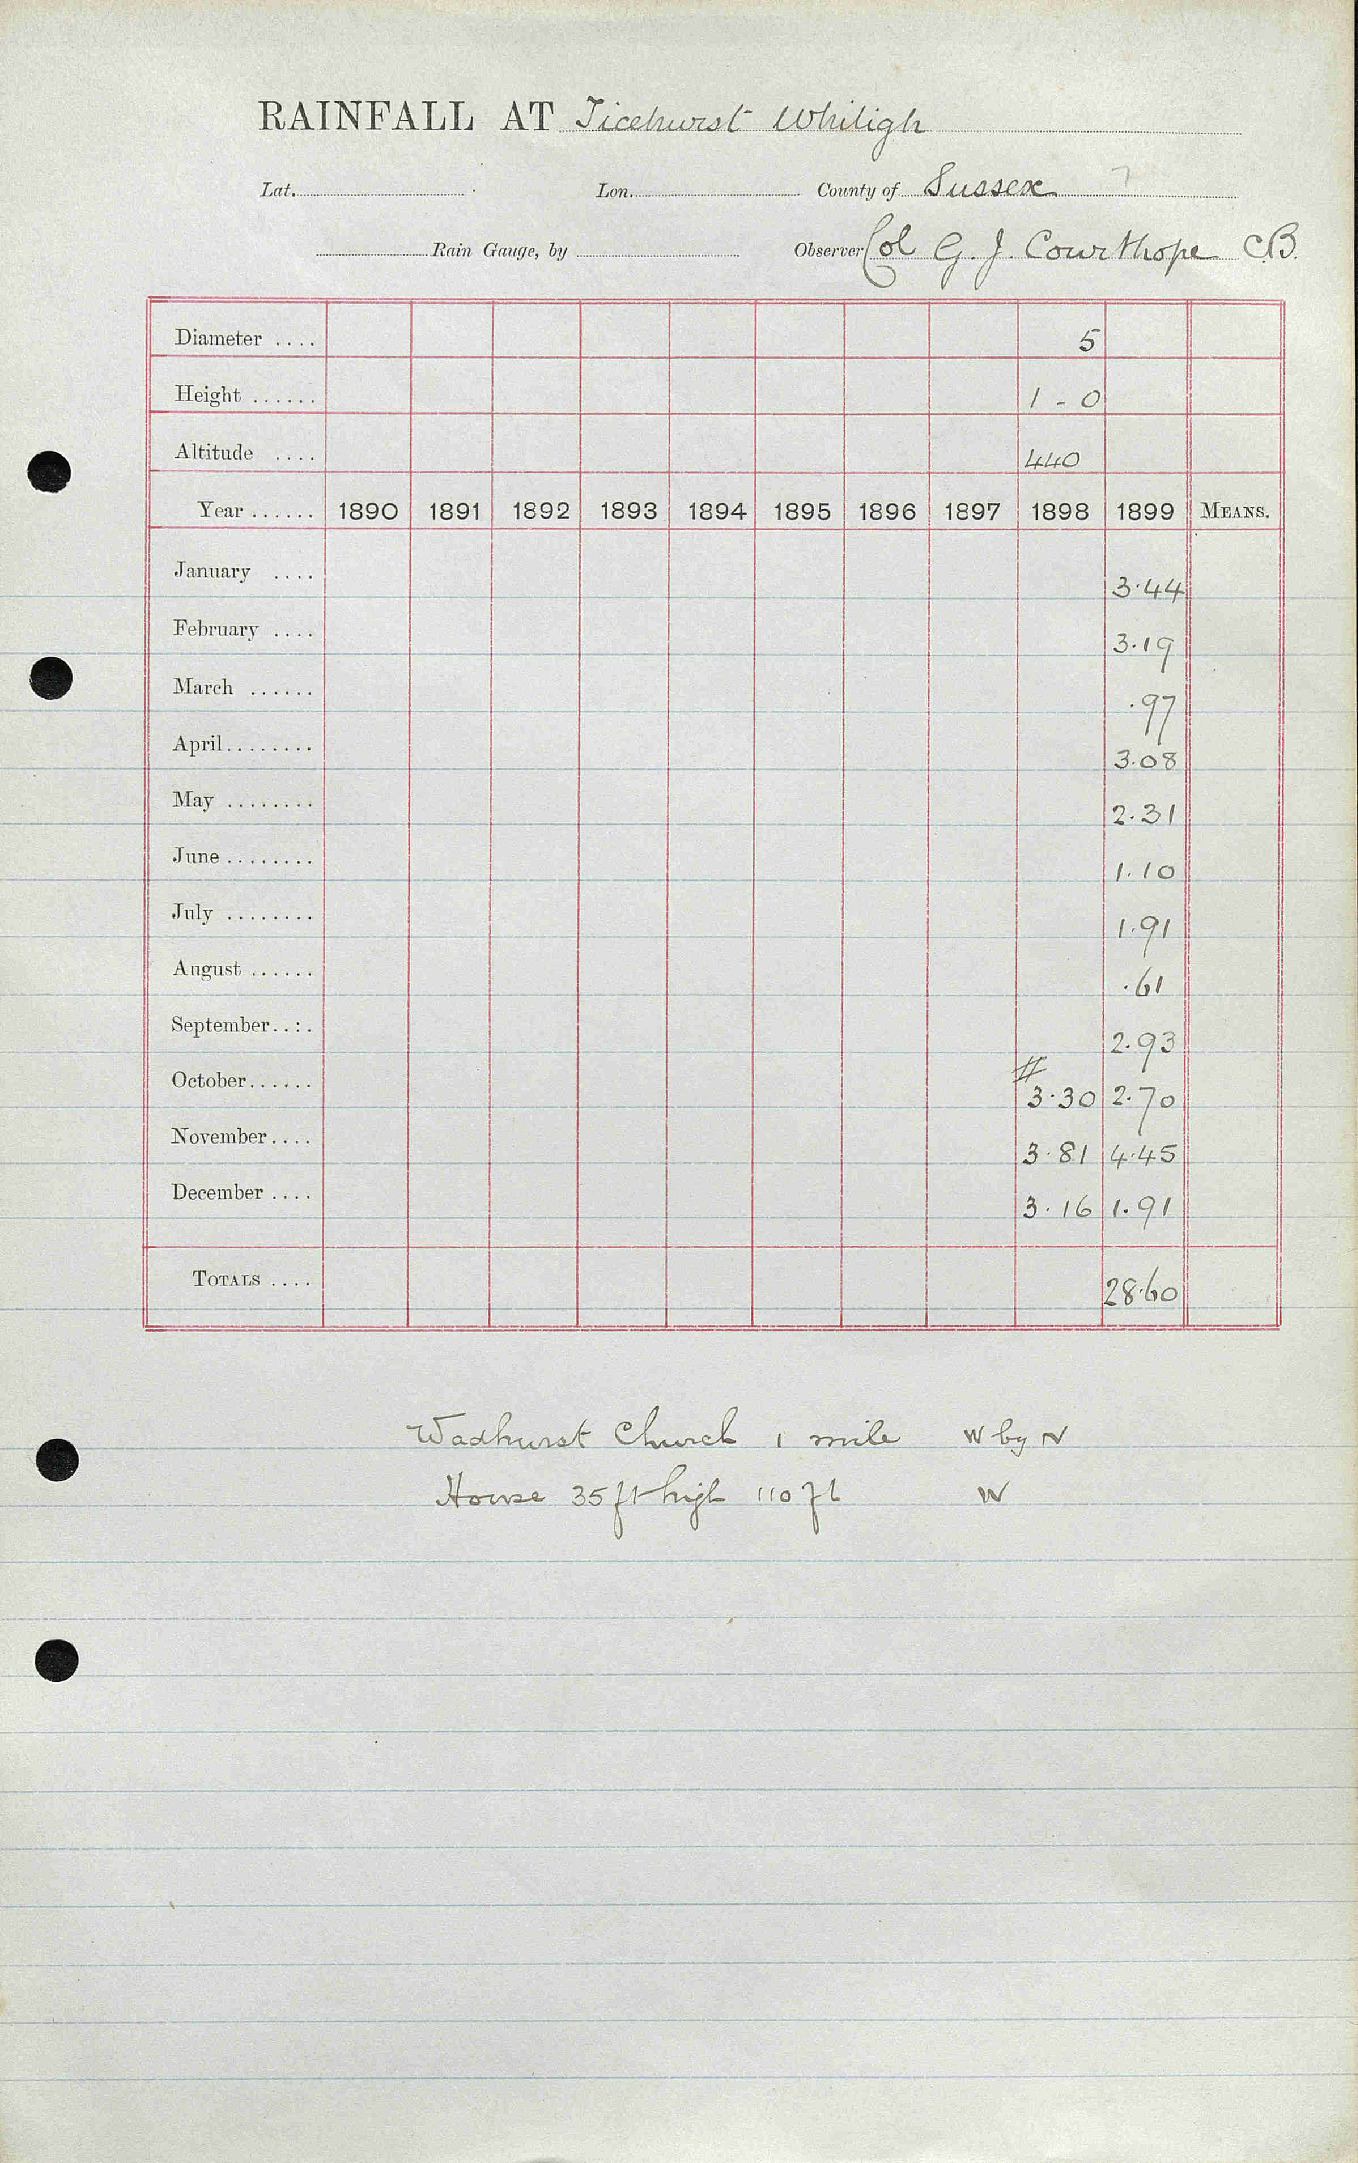 RAINFALL AT Ticehurst Whiligh
Lat. Lon. County of Sussex 7
Rain Gauge, by Observer Col G. J. Courthope C.B.
Diameter .... 5
Height ...... 1 - 0
Altitude .... 440
Year ...... 1890 1891 1892 1893 1894 1895 1896 1897 1898 1899 MEANS.
January .... 3.44
February .... 3.19
March ...... .97
April........ 3.08
May ........ 2.31
June ........ 1.10
July ........ 1.91
August ...... .61
September.... 2.93
October...... # 3.30 2.70
November.... 3.81 4.45
December .... 3.16 1.91
TOTALS .... 28.60
Wadhurst Church 1 mile W by N
House 35 ft high 110 ft W